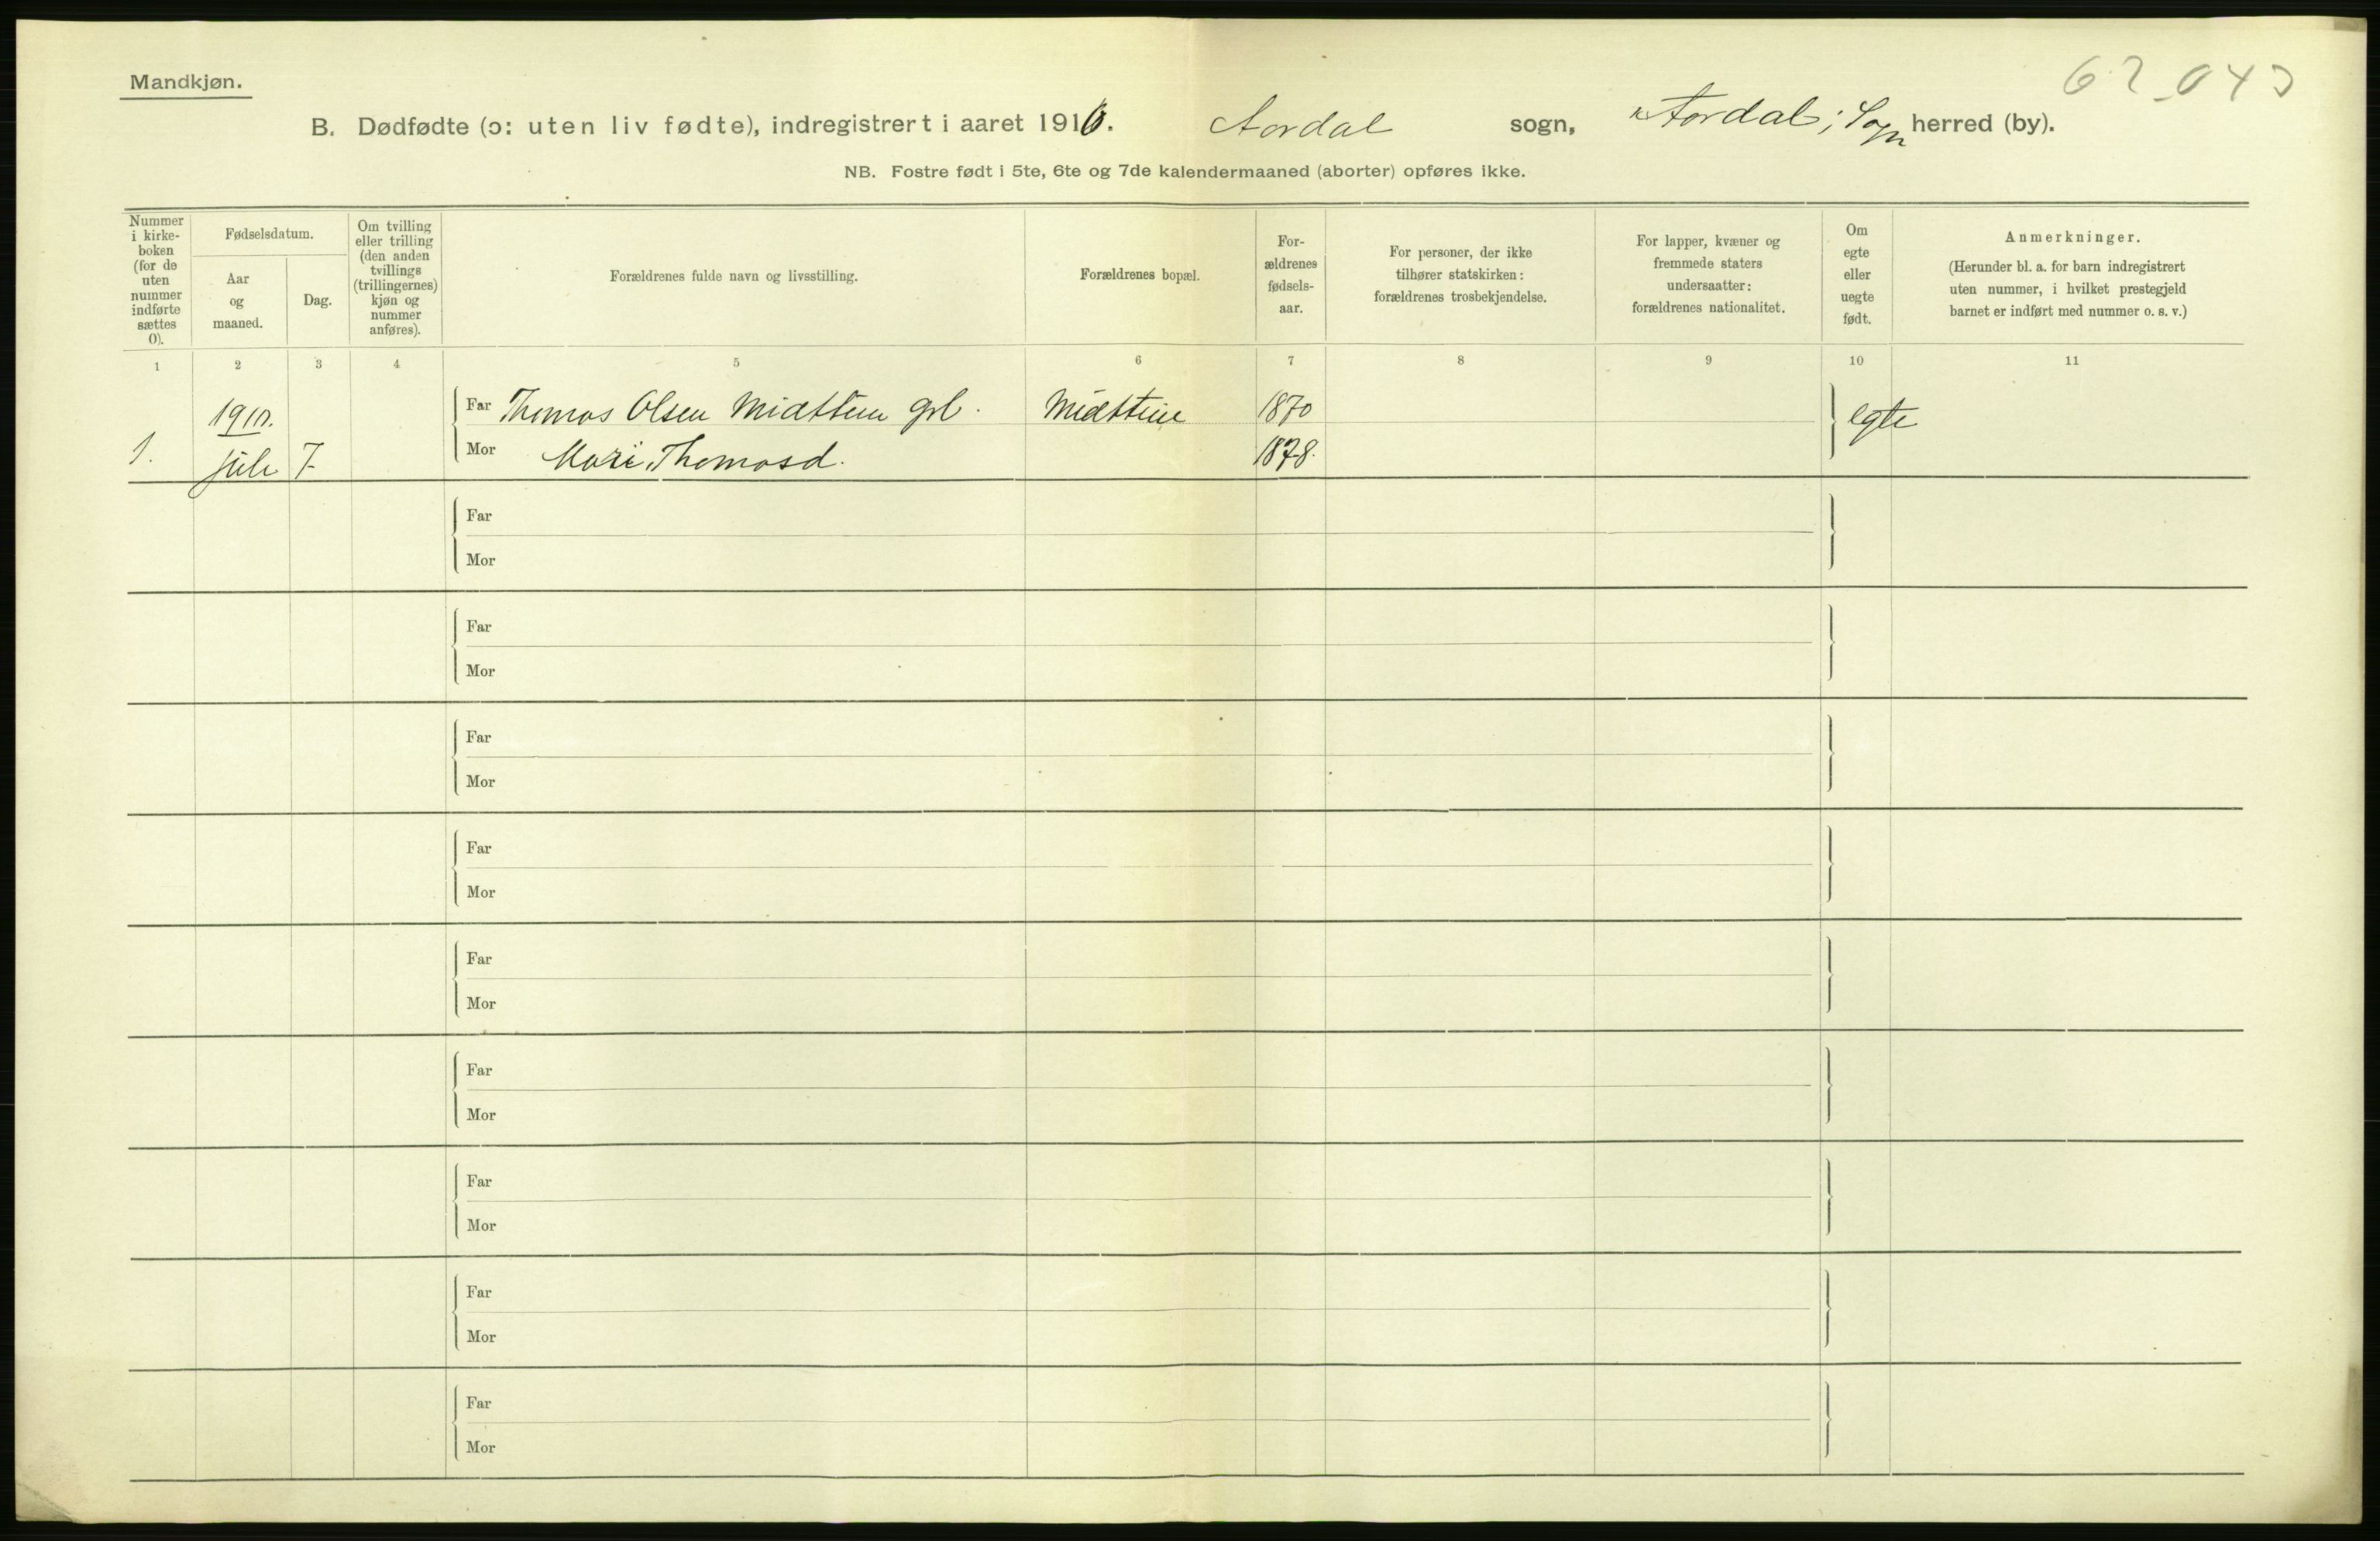 Mandkjøn.
B. Dødfødte (ɔ: uten liv fødte), indregistrert i aaret 1910. Aardal sogn, Aardal i Sogn herred (by).
NB. Fostre født i 5te, 6te og 7de kalendermaaned (aborter) opføres ikke.
Nummer
i kirke-
boken
(for de
uten
nummer
indførte
sættes
0).
Fødselsdatum.
Aar
og
maaned.
Dag.
Om tvilling
eller trilling
(den anden
tvillings
(trillingernes)
kjøn og
nummer
anføres).
Forældrenes fulde navn og livsstilling.
Forældrenes bopæl.
For-
ældrenes
fødsels-
aar.
For personer, der ikke
tilhører statskirken:
forældrenes trosbekjendelse.
For lapper, kvæner og
fremmede staters
undersaatter:
forældrenes nationalitet.
Om
egte
eller
uegte
født.
Anmerkninger.
(Herunder bl. a. for barn indregistrert
uten nummer, i hvilket prestegjeld
barnet er indført med nummer o. s. v.)
1 2 3 4 5 6 7 8 9 10 11
1910. Far Thomas Olsen Midttun grb. Midttun 1870 egte
1. juli 7 Mor Mari Thomasd. 1878.
Far
Mor
Far
Mor
Far
Mor
Far
Mor
Far
Mor
Far
Mor
Far
Mor
Far
Mor
Far
Mor